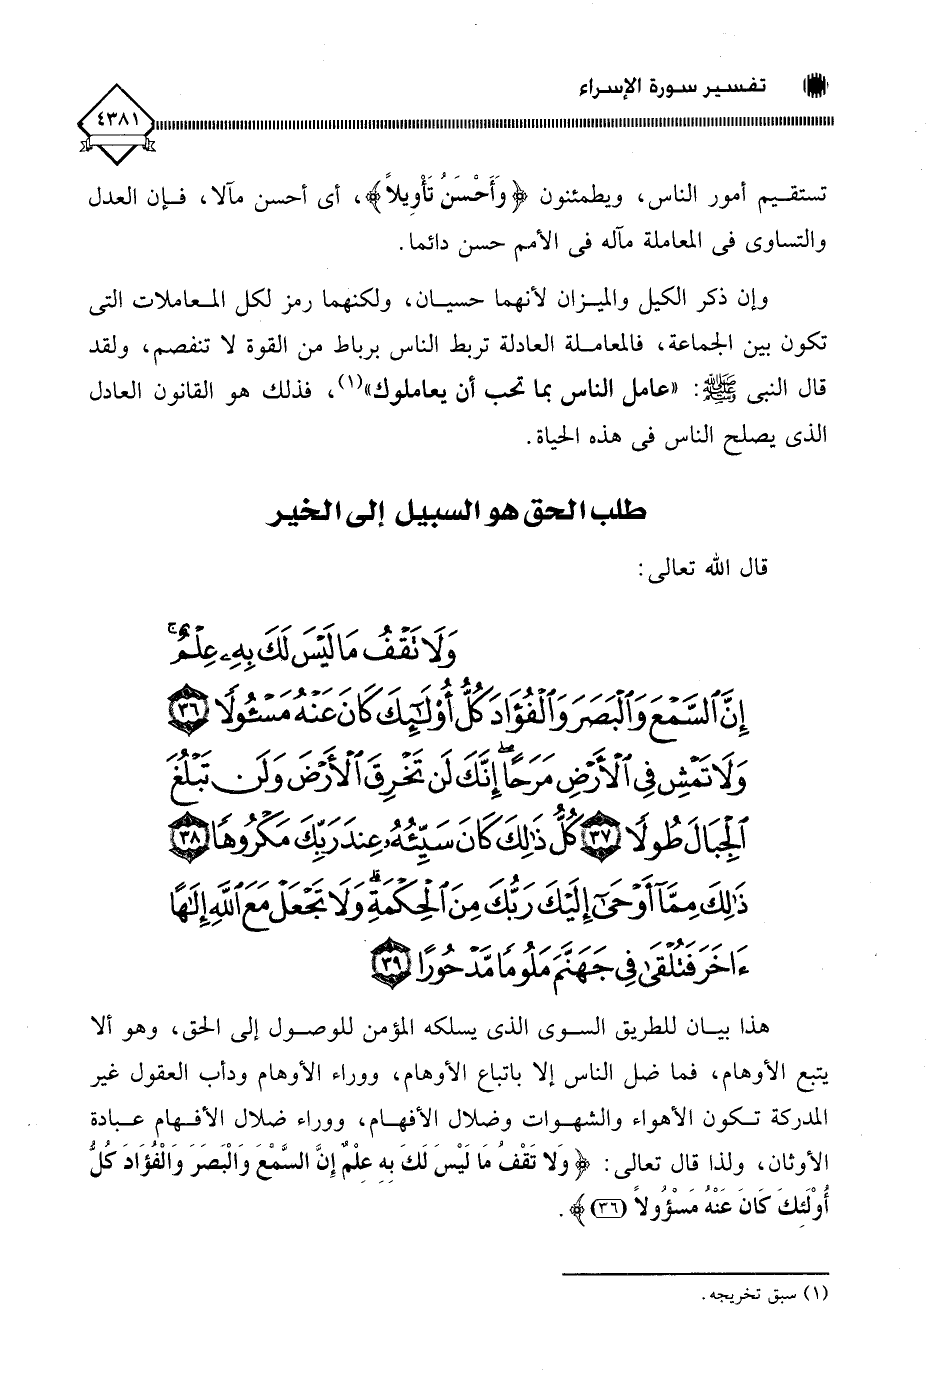 تفسير سورة الإسراء
٤٣٨١
تستقيم أمور الناس، ويطمئنون ﴿وَأَحْسَنُ تَأْوِيلاً﴾، أى أحسن مآلا، فإن العدل
والتساوى فى المعاملة مآله فى الأمم حسن دائما.
وإن ذكر الكيل والميزان لأنهما حسيان، ولكنهما رمز لكل المعاملات التى
تكون بين الجماعة، فالمعاملة العادلة تربط الناس برباط من القوة لا تنفصم، ولقد
قال النبى ﷺ: «عامل الناس بما تحب أن يعاملوك»(١)، فذلك هو القانون العادل
الذى يصلح الناس فى هذه الحياة.
طلب الحق هو السبيل إلى الخير
قال الله تعالى:
وَلَا تَقْفُ مَا لَيْسَ لَكَ بِهِۦ عِلْمٌ ۚ
إِنَّ ٱلسَّمْعَ وَٱلْبَصَرَ وَٱلْفُؤَادَ كُلُّ أُو۟لَٰٓئِكَ كَانَ عَنْهُ مَسْـُٔولًا ٣٦
وَلَا تَمْشِ فِى ٱلْأَرْضِ مَرَحًا ۖ إِنَّكَ لَن تَخْرِقَ ٱلْأَرْضَ وَلَن تَبْلُغَ
ٱلْجِبَالَ طُولًا ٣٧ كُلُّ ذَٰلِكَ كَانَ سَيِّئُهُۥ عِندَ رَبِّكَ مَكْرُوهًا ٣٨
ذَٰلِكَ مِمَّآ أَوْحَىٰٓ إِلَيْكَ رَبُّكَ مِنَ ٱلْحِكْمَةِ ۗ وَلَا تَجْعَلْ مَعَ ٱللَّهِ إِلَٰهًا
ءَاخَرَ فَتُلْقَىٰ فِى جَهَنَّمَ مَلُومًا مَّدْحُورًا ٣٩
هذا بيان للطريق السوى الذى يسلكه المؤمن للوصول إلى الحق، وهو ألا
يتبع الأوهام، فما ضل الناس إلا باتباع الأوهام، ووراء الأوهام ودأب العقول غير
المدركة تكون الأهواء والشهوات وضلال الأفهام، ووراء ضلال الأفهام عبادة
الأوثان، ولذا قال تعالى: ﴿وَلا تَقْفُ مَا لَيْسَ لَكَ بِهِ عِلْمٌ إِنَّ السَّمْعَ وَالْبَصَرَ وَالْفُؤَادَ كُلُّ
أُوْلَئِكَ كَانَ عَنْهُ مَسْؤُولاً (٣٦)﴾.
(١) سبق تخريجه.